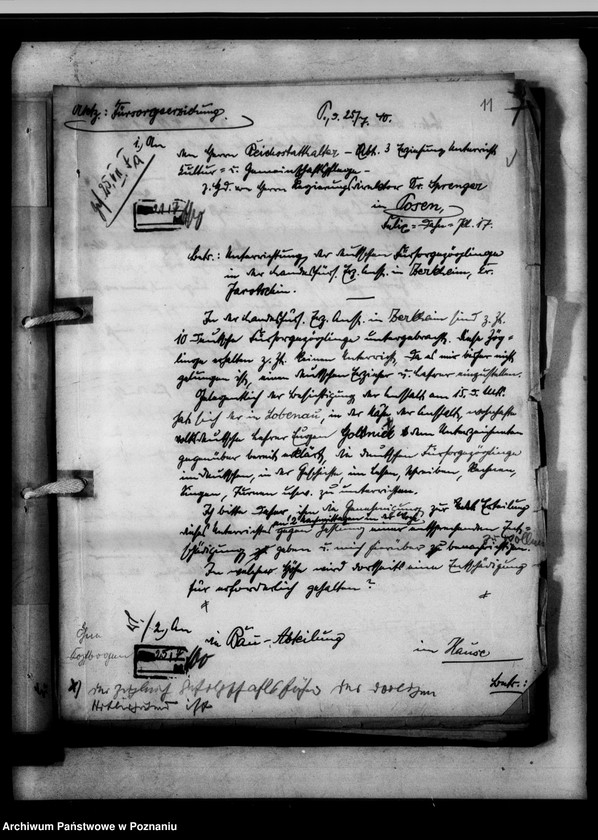 Aktz.: Fürsorgeerziehung.
P., d. 25/7. 40.
11
1, An
den Herrn Reichsstatthalter – Abt. 3 Erziehung Unterricht
Kultur = u. Gemeinschaftspflege –
z. Hd. von Herrn Regierungsdirektor Dr. Sprenger
in Posen,
Felix = Dahn = Pl. 17.
Betr.: Unterrichtung der deutschen Fürsorgezöglinge
in der Landesfürs. Erz. Anst. in
Jarotschin.
In der Landesfürs. Erz. Anst. in sind z. Zt.
10 deutsche Fürsorgezöglinge untergebracht. Diese Zög-
linge erhalten z. Zt. keinen Unterricht, da es mir bisher nicht
gelungen ist, einen deutschen Erzieher u. Lehrer einzustellen.
Gelegentlich der Besichtigung der Anstalt am 15. d. Mts.
hat sich der in Lobenau, in der Nähe der Anstalt, wohnhafte
volksdeutsche Lehrer Eugen dem Unterzeichneten
gegenüber bereit erklärt, die deutschen Fürsorgezöglinge
im Deutschen, in der Geschichte, im Lesen, Schreiben, Rechnen,
Singen, Turnen usw. zu unterrichten.
Ich bitte daher, ihm die Genehmigung zur Erteilung
dieses Unterrichts gegen Zahlung einer entsprechenden Ent-
schädigung zu geben u. mich hierüber zu benachrichtigen.
In welcher Höhe wird dortseits eine Entschädigung
für erforderlich gehalten?
2, An
die Bau-Abteilung
im Hause
Betr.:
ist
Archiwum Państwowe w Poznaniu